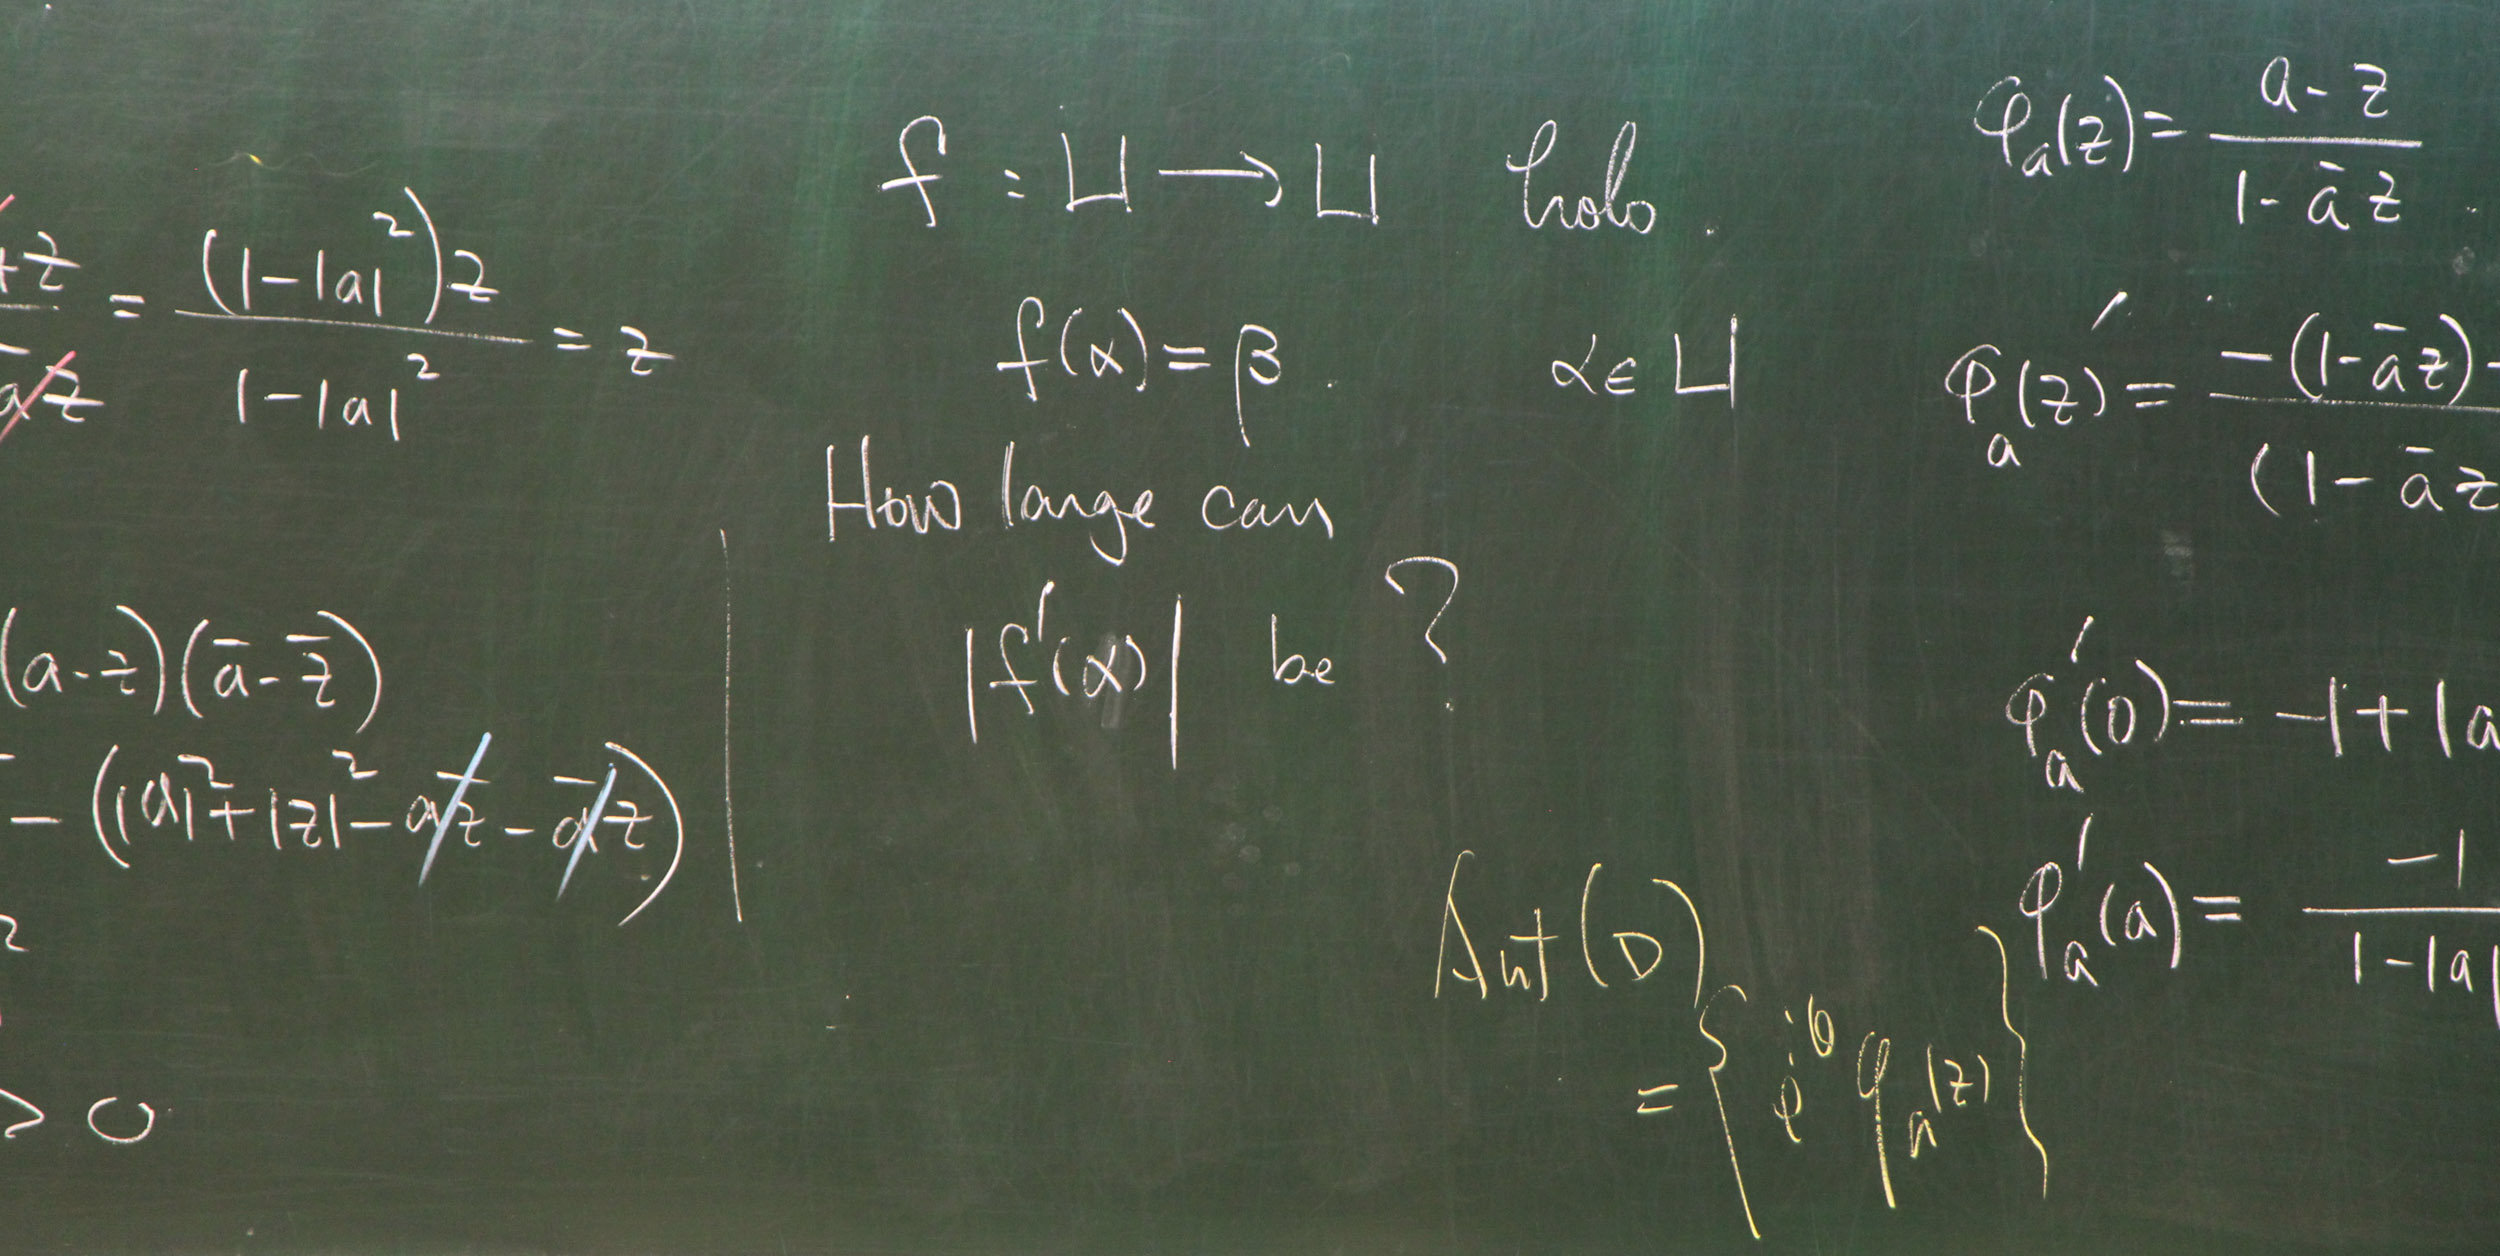 +z = (1-|a|²)z / 1-|a|² = z
āz
(a-z)(ā-z̄)
- (|a|²+|z|²-az̄-āz)
2
> 0
f : ⊔ → ⊔ holo.
f(α)=β. α∈⊔
How large can
|f'(α)| be ?
Aut(D)
= { e^{iθ} φ_a(z) }
φ_a(z) = a-z / 1-āz .
φ_a'(z) = -(1-āz)- / (1-āz
φ_a'(0) = -1+|a
φ_a'(a) = -1 / 1-|a|